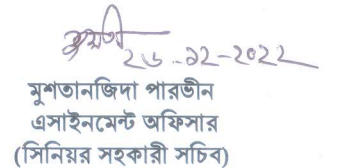 ২৬-১২-২০২২
মুশতানজিদা পারভীন
এসাইনমেন্ট অফিসার
(সিনিয়র সহকারী সচিব)